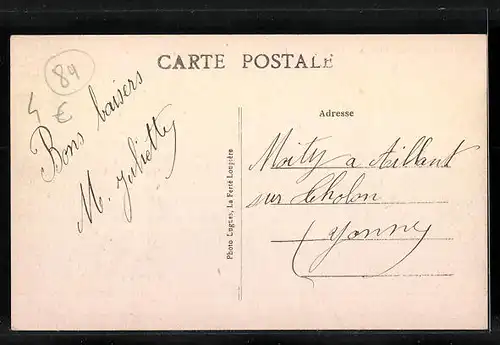 CARTE POSTALE
84
4
€
Bons baisers
M. Juliette
Photo Lognes, La Ferté Loupière
Adresse
Moity a Aillant
sur tholon
Yonne